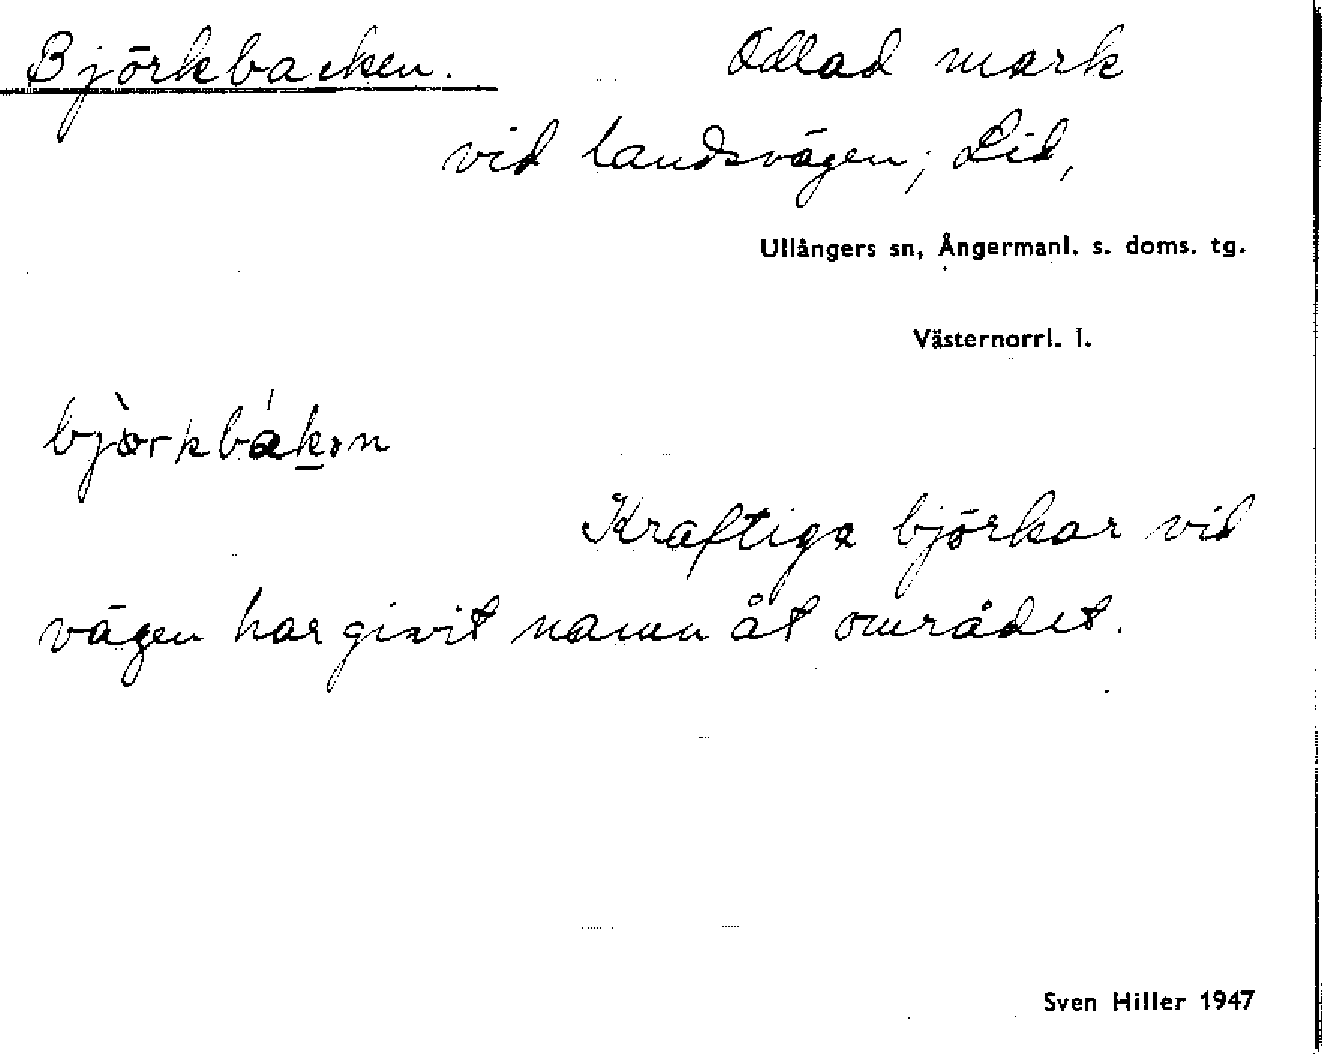 Björkbacken. Odlad mark
vid landsvägen; Lid,
Ullångers sn, Ångermanl. s. doms. tg.
Västernorrl. l.
bjòrkbák̲ən
Kraftiga björkar vid
vägen har givit namn åt området.
Sven Hiller 1947